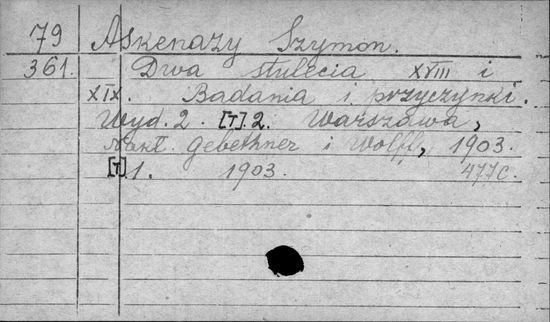 79 Askenazy Szymon.
361. Dwa stulecia XVIII i
XIX. Badania i przyczynki.
Wyd. 2. [T]. 2. Warszawa,
Nakł. Gebethner i Wolff, 1903.
[T]. 1. 1903. 477c.